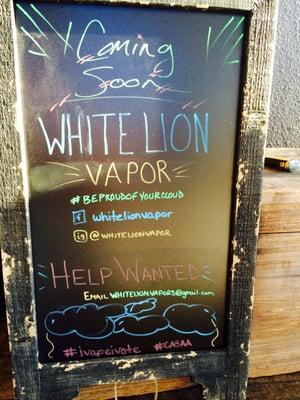 Coming
Soon
WHITE LION
VAPOR
#BEPROUDOFYOURCLOUD
f whitelionvapor
ig @WHITELIONVAPOR
HELP WANTED
EMAIL WHITELIONVAPORS@gmail.com
#ivapeivote #CASAA